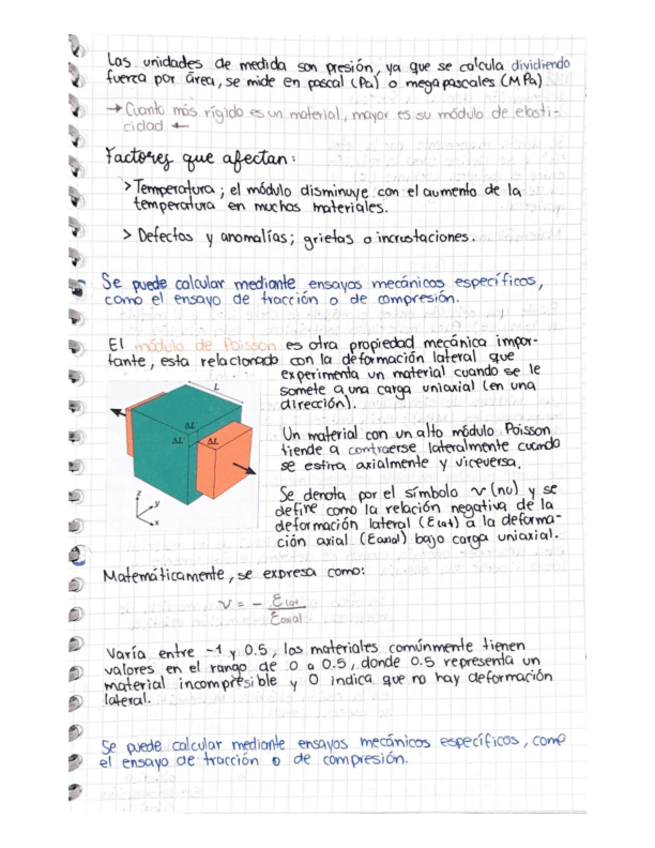 Las unidades de medida son presión, ya que se calcula dividiendo
fuerza por área, se mide en pascal (Pa) o megapascales (MPa)
→ Cuanto más rígido es un material, mayor es su módulo de elasti-
cidad ←
Factores que afectan:
> Temperatura; el módulo disminuye con el aumento de la
temperatura en muchos materiales.
> Defectos y anomalías; grietas o incrustaciones.
Se puede calcular mediante ensayos mecánicos específicos,
como el ensayo de tracción o de compresión.
El módulo de Poisson es otra propiedad mecánica impor-
tante, esta relacionado con la deformación lateral que
experimenta un material cuando se le
somete a una carga uniaxial (en una
dirección).
L
ΔL'
ΔL' ΔL
z
y
x
Un material con un alto módulo Poisson
tiende a contraerse lateralmente cuando
se estira axialmente y viceversa.
Se denota por el símbolo ν (nu) y se
define como la relación negativa de la
deformación lateral (Ɛlat) a la deforma-
ción axial (Ɛaxial) bajo carga uniaxial.
Matemáticamente, se expresa como:
ν = - Ɛlat
Ɛaxial
Varía entre -1 y 0.5, los materiales comúnmente tienen
valores en el rango de 0 a 0.5, donde 0.5 representa un
material incompresible y 0 indica que no hay deformación
lateral.
Se puede calcular mediante ensayos mecánicos específicos, como
el ensayo de tracción o de compresión.